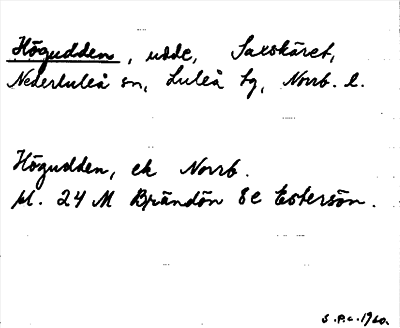 Högudden, udde, Saxskäret,
Nederluleå sn, Luleå tg, Norrb. l.
Högudden, ek Norrb.
bl. 24 M Brändön Se Estersön.
S.P.C. 1960.